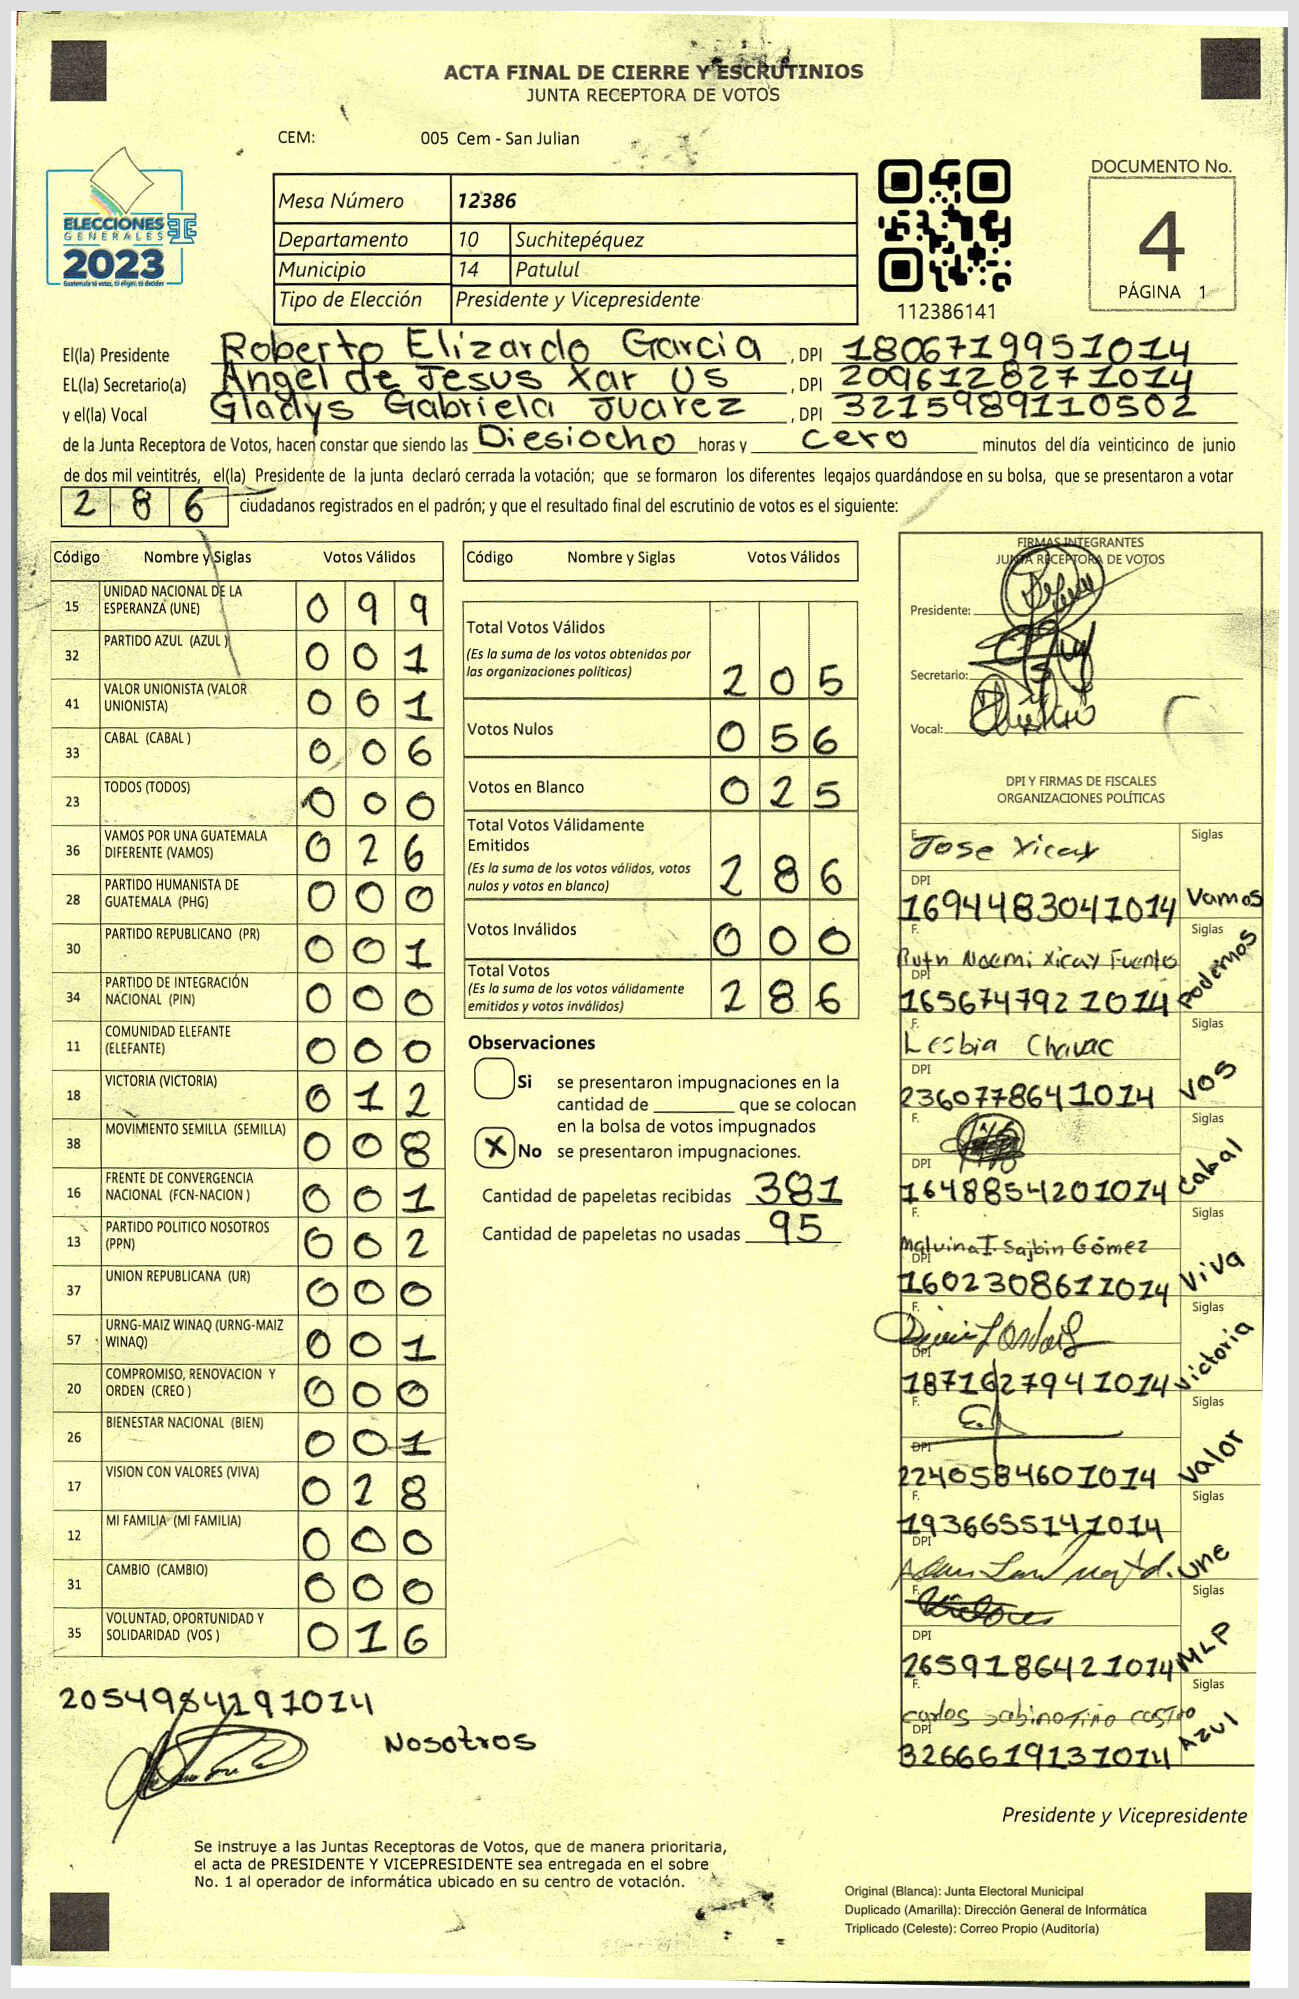 ACTA FINAL DE CIERRE Y ESCRUTINIOS
JUNTA RECEPTORA DE VOTOS
CEM: 005 Cem - San Julian
ELECCIONES
GENERALES
2023
Guatemala tú votas, tú eliges, tú decides
Mesa Número 12386
Departamento 10 Suchitepéquez
Municipio 14 Patulul
Tipo de Elección Presidente y Vicepresidente
112386141
DOCUMENTO No.
4
PÁGINA 1
El(la) Presidente Roberto Elizardo Garcia , DPI 1806719951014
EL(la) Secretario(a) Angel de Jesus Xar Us , DPI 2096128271014
y el(la) Vocal Gladys Gabriela Juarez , DPI 3215989110502
de la Junta Receptora de Votos, hacen constar que siendo las Diesiocho horas y cero minutos del día veinticinco de junio
de dos mil veintitrés, el(la) Presidente de la junta declaró cerrada la votación; que se formaron los diferentes legajos guardándose en su bolsa, que se presentaron a votar
286 ciudadanos registrados en el padrón; y que el resultado final del escrutinio de votos es el siguiente:
Código Nombre y Siglas Votos Válidos
15 UNIDAD NACIONAL DE LA ESPERANZA (UNE) 099
32 PARTIDO AZUL (AZUL ) 001
41 VALOR UNIONISTA (VALOR UNIONISTA) 001
33 CABAL (CABAL ) 006
23 TODOS (TODOS) 000
36 VAMOS POR UNA GUATEMALA DIFERENTE (VAMOS) 026
28 PARTIDO HUMANISTA DE GUATEMALA (PHG) 000
30 PARTIDO REPUBLICANO (PR) 001
34 PARTIDO DE INTEGRACIÓN NACIONAL (PIN) 000
11 COMUNIDAD ELEFANTE (ELEFANTE) 000
18 VICTORIA (VICTORIA) 012
38 MOVIMIENTO SEMILLA (SEMILLA) 008
16 FRENTE DE CONVERGENCIA NACIONAL (FCN-NACION ) 001
13 PARTIDO POLITICO NOSOTROS (PPN) 002
37 UNION REPUBLICANA (UR) 000
57 URNG-MAIZ WINAQ (URNG-MAIZ WINAQ) 001
20 COMPROMISO, RENOVACION Y ORDEN (CREO ) 000
26 BIENESTAR NACIONAL (BIEN) 001
17 VISION CON VALORES (VIVA) 028
12 MI FAMILIA (MI FAMILIA) 000
31 CAMBIO (CAMBIO) 000
35 VOLUNTAD, OPORTUNIDAD Y SOLIDARIDAD (VOS ) 016
2054984191014
Nosotros
Código Nombre y Siglas Votos Válidos
Total Votos Válidos 205
(Es la suma de los votos obtenidos por
las organizaciones políticas)
Votos Nulos 056
Votos en Blanco 025
Total Votos Válidamente
Emitidos 286
(Es la suma de los votos válidos, votos
nulos y votos en blanco)
Votos Inválidos 000
Total Votos 286
(Es la suma de los votos válidamente
emitidos y votos inválidos)
Observaciones
Si se presentaron impugnaciones en la
cantidad de ________ que se colocan
en la bolsa de votos impugnados
X No se presentaron impugnaciones.
Cantidad de papeletas recibidas 381
Cantidad de papeletas no usadas 95
FIRMAS INTEGRANTES
JUNTA RECEPTORA DE VOTOS
Presidente:
Secretario:
Vocal:
DPI Y FIRMAS DE FISCALES
ORGANIZACIONES POLÍTICAS
F. Jose Xicay Siglas
DPI 1694483041014 Vamos
F. Ruth Noemi Xicay Fuento Siglas
DPI 1656747921014 Podemos
F. Lesbia Chavac Siglas
DPI 2360778641014 VOS
F. Siglas
DPI 1648854201014 Cabal
F. Malvina I. Sajbin Gómez Siglas
DPI 1602308611014 Viva
F. Siglas
DPI 1871627941014 Victoria
F. Siglas
DPI 2240584601014 Valor
F. 1936655141014 Siglas
DPI une
F. Siglas
DPI 2659186421014 MLP
F. carlos sabino Tiño castro Siglas
DPI 3266619131014 Azul
Presidente y Vicepresidente
Se instruye a las Juntas Receptoras de Votos, que de manera prioritaria,
el acta de PRESIDENTE Y VICEPRESIDENTE sea entregada en el sobre
No. 1 al operador de informática ubicado en su centro de votación.
Original (Blanca): Junta Electoral Municipal
Duplicado (Amarilla): Dirección General de Informática
Triplicado (Celeste): Correo Propio (Auditoría)